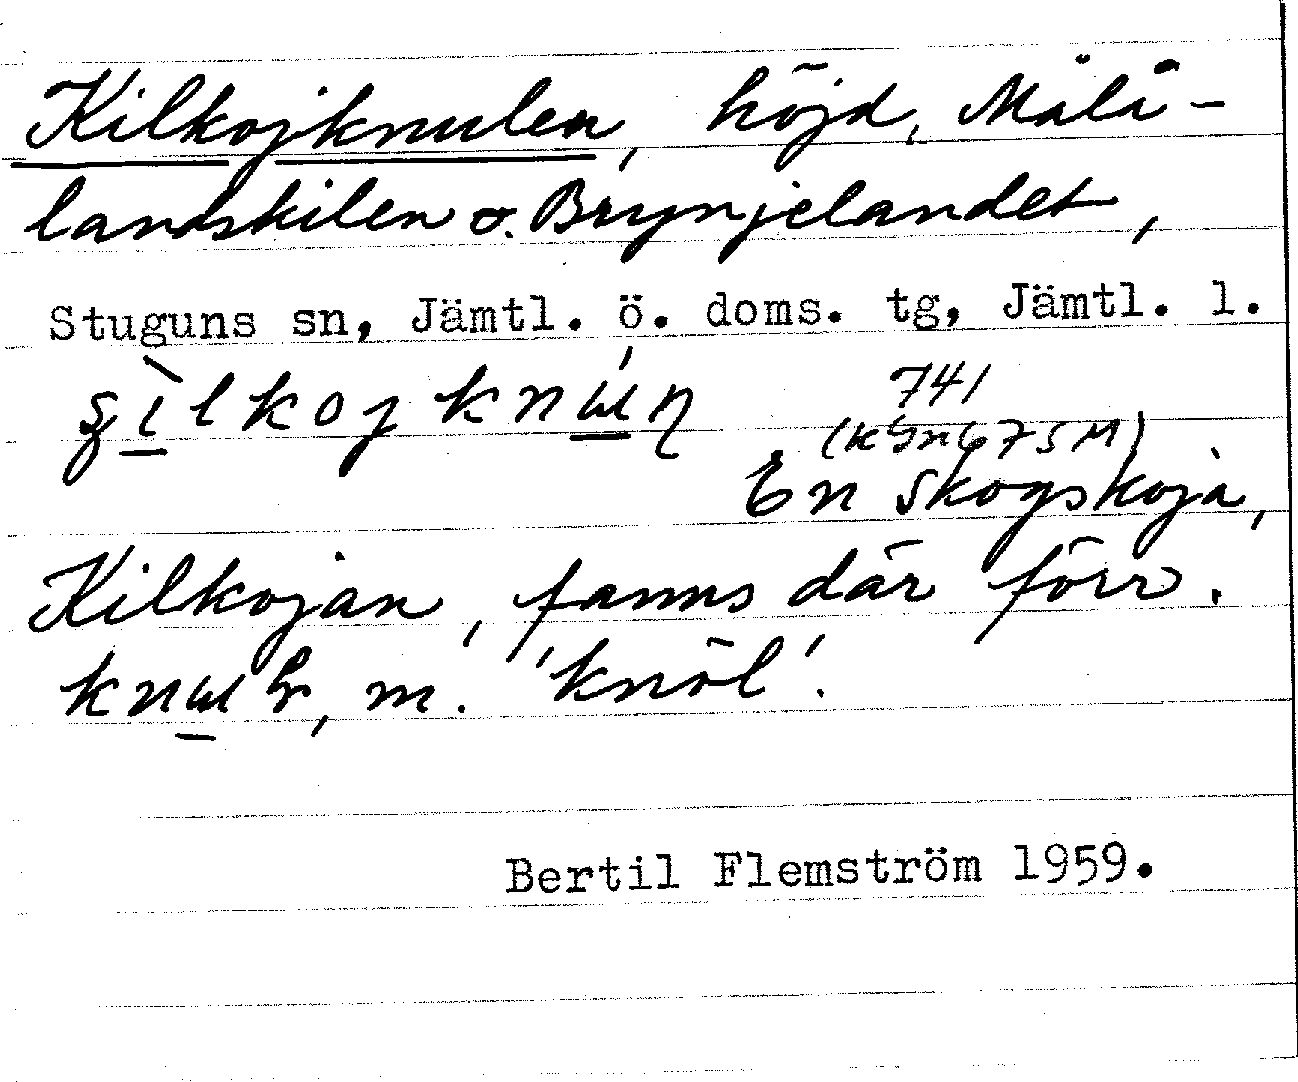 Kilkojknulen, höjd, Mälå-
landskilen o. Brynjelandet,
Stuguns sn, Jämtl. ö. doms. tg, Jämtl. l.
741
En skogskoja,
Kilkojan, fanns där förr.
m. 'knöl'.
Bertil Flemström 1959.